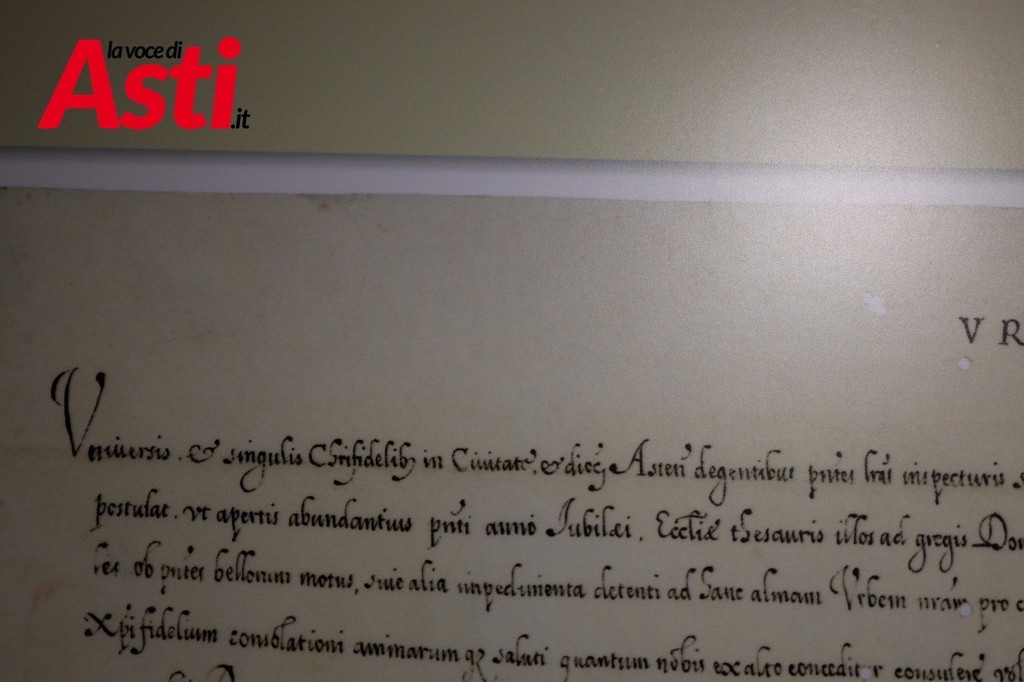 la voce di
Asti.it
VR
Vniuersis . & singulis Chrifidelibȝ in Ciuitate, & dioeȝ Asten̄ degentibus pn̄tes lr̄as inspecturis
postulat . vt apertis abundantius pn̄ti anno Jubilæi . Eccl̄iæ thesauris illos ad gregis Dom
ob pn̄tes bellorum motus, siue alia impedimenta detenti ad hanc almam Vrbem nr̄am pro
Xp̄ifidelium consolationi animarum qȝ saluti quantum nobis ex alto conceditur consulere